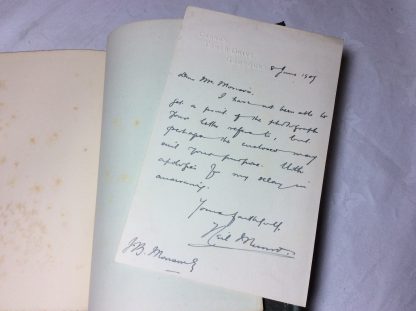 8 June 1907
Dear Mr. Morison,
I have not been able to
get a print of the photograph
your letter refers to, but
perhaps the enclosed may
suit your purpose. With
apologies for my delay in
answering,
Yours faithfully,
Neil Munro.
J. B. Morison